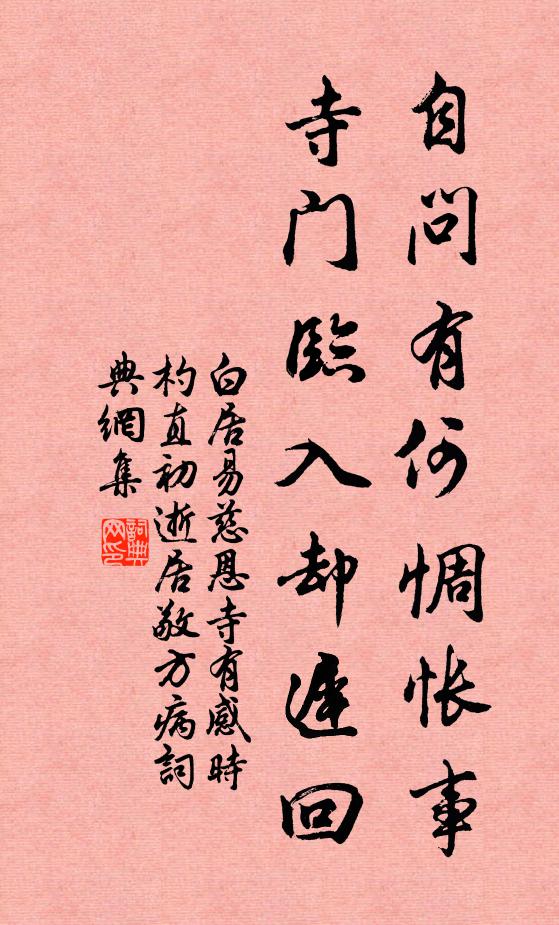 自问有何惆怅事
寺门臨入却遲回
白居易慈恩寺有感時
杓直初逝居敬方病詞
典網集
詞典网印